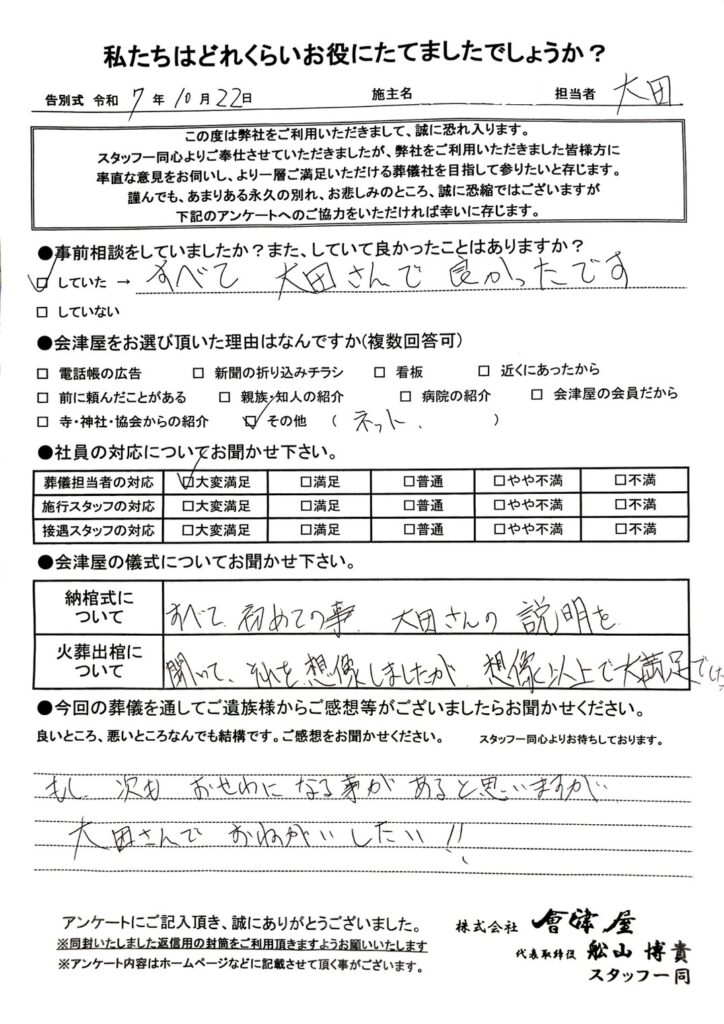 私たちはどれくらいお役にたてましたでしょうか？
告別式 令和 7 年 10 月 22 日 施主名 担当者 大田
この度は弊社をご利用いただきまして、誠に恐れ入ります。
スタッフ一同心よりご奉仕させていただきましたが、弊社をご利用いただきました皆様方に
率直な意見をお伺いし、より一層ご満足いただける葬儀社を目指して参りたいと存じます。
謹んでも、あまりある永久の別れ、お悲しみのところ、誠に恐縮ではございますが
下記のアンケートへのご協力をいただければ幸いに存じます。
●事前相談をしていましたか？また、していて良かったことはありますか？
☑ していた → すべて 大田さんで 良かったです
□ していない
●会津屋をお選び頂いた理由はなんですか(複数回答可)
□ 電話帳の広告 □ 新聞の折り込みチラシ □ 看板 □ 近くにあったから
□ 前に頼んだことがある □ 親族・知人の紹介 □ 病院の紹介 □ 会津屋の会員だから
□ 寺・神社・協会からの紹介 ☑ その他 （ ネット. ）
●社員の対応についてお聞かせ下さい。
葬儀担当者の対応 ☑大変満足 □満足 □普通 □やや不満 □不満
施行スタッフの対応 □大変満足 □満足 □普通 □やや不満 □不満
接遇スタッフの対応 □大変満足 □満足 □普通 □やや不満 □不満
●会津屋の儀式についてお聞かせ下さい。
納棺式について すべて 初めての事 大田さんの 説明を
火葬出棺について 聞いて、それを 想像しましたが 想像以上で大満足でした
●今回の葬儀を通してご遺族様からご感想等がございましたらお聞かせください。
良いところ、悪いところなんでも結構です。ご感想をお聞かせください。 スタッフ一同心よりお待ちしております。
もし 次も おせわに なる事が あると思いますが
大田さんで おねがいしたい!!
アンケートにご記入頂き、誠にありがとうございました。
※同封いたしました返信用の封筒をご利用頂きますようお願いいたします
※アンケート内容はホームページなどに記載させて頂く事がございます。
株式会社 會津屋
代表取締役 舩山 博貴
スタッフ一同